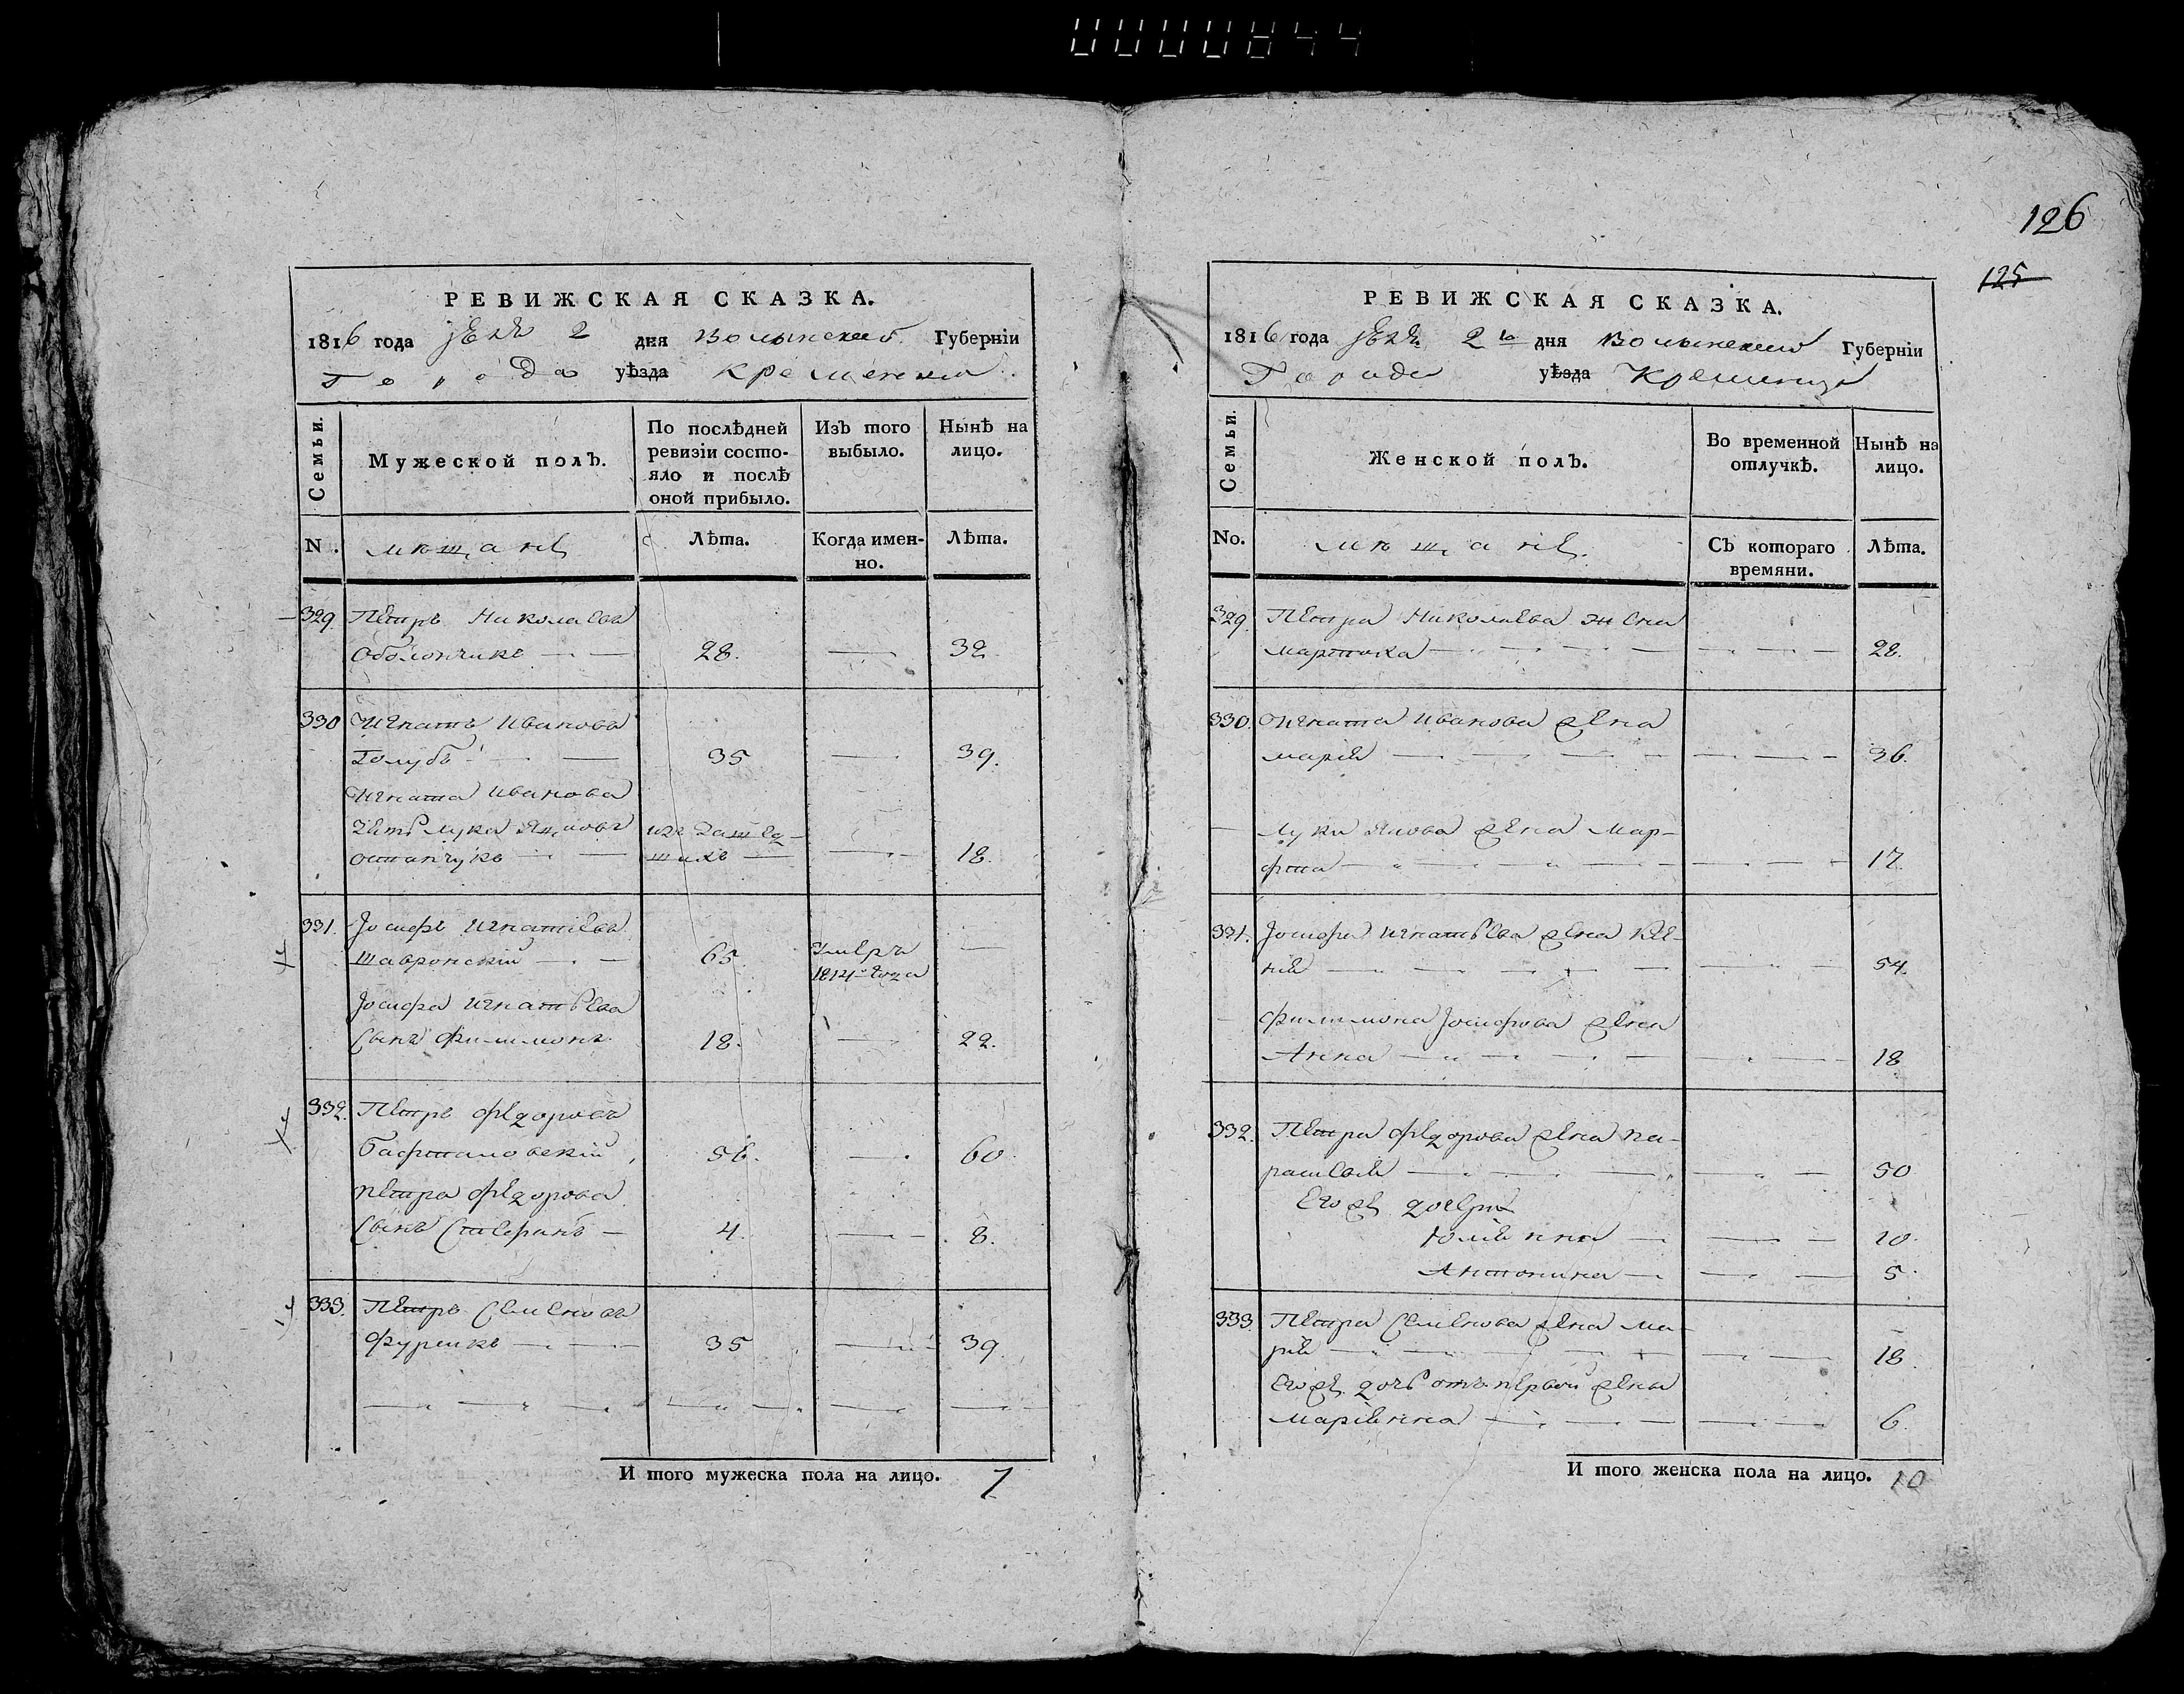 0000844
126
125
РЕВИЖСКАЯ СКАЗКА.
1816 года 2 дня Волынской Губернiи
Города уѣзда Кременца
Семьи.
Мужеской полъ.
По послѣдней ревизiи состо-
яло и послѣ оной прибыло.
Изъ того выбыло.
Нынѣ на лицо.
N.
мѣщанѣ
Лѣта.
Когда имен-
но.
Лѣта.
329. Петръ Николаевъ
Оболончикъ 28. 32
330 Игнатъ Ивановъ
Голубъ 35 39.
Игната Иванова
Зять Лука Яцковъ
Остапчукъ 18.
331. Iосифъ Игнатiевъ
Тавронскiй 65. Умеръ
1814 года
Iосифа Игнатьева
Сынъ Филимонъ 18. 22.
332. Петръ Федоровъ
Бафталовскiй 56. 60
Петра Федорова
Сынъ Северинъ 4. 8.
333. Петръ Семеновъ
Фурсикъ 35 39
И того мужеска пола на лицо. 7
РЕВИЖСКАЯ СКАЗКА.
1816 года 2го дня Волынской Губернiи
Города уѣзда Кременца
Семьи.
Женской полъ.
Во временной отлучкѣ.
Нынѣ на лицо.
No.
мѣщанѣ.
Съ котораго времяни.
Лѣта.
329. Петра Николаева жена
28.
330. Игната Иванова жена
Марiя 36.
Луки Яцкова жена Мар-
фта 17.
331. Iосифа Игнатьева жена
54.
Филимона Iосифова жена
Анна 18
332. Петра Федорова жена Па-
расковiя 50
Его же дочери
Юлiянна 10
Антонина 5
333. Петра Семенова жена Ма-
рiя 18
Его же дочь отъ первой жены
Марiянна 6.
И того женска пола на лицо. 10